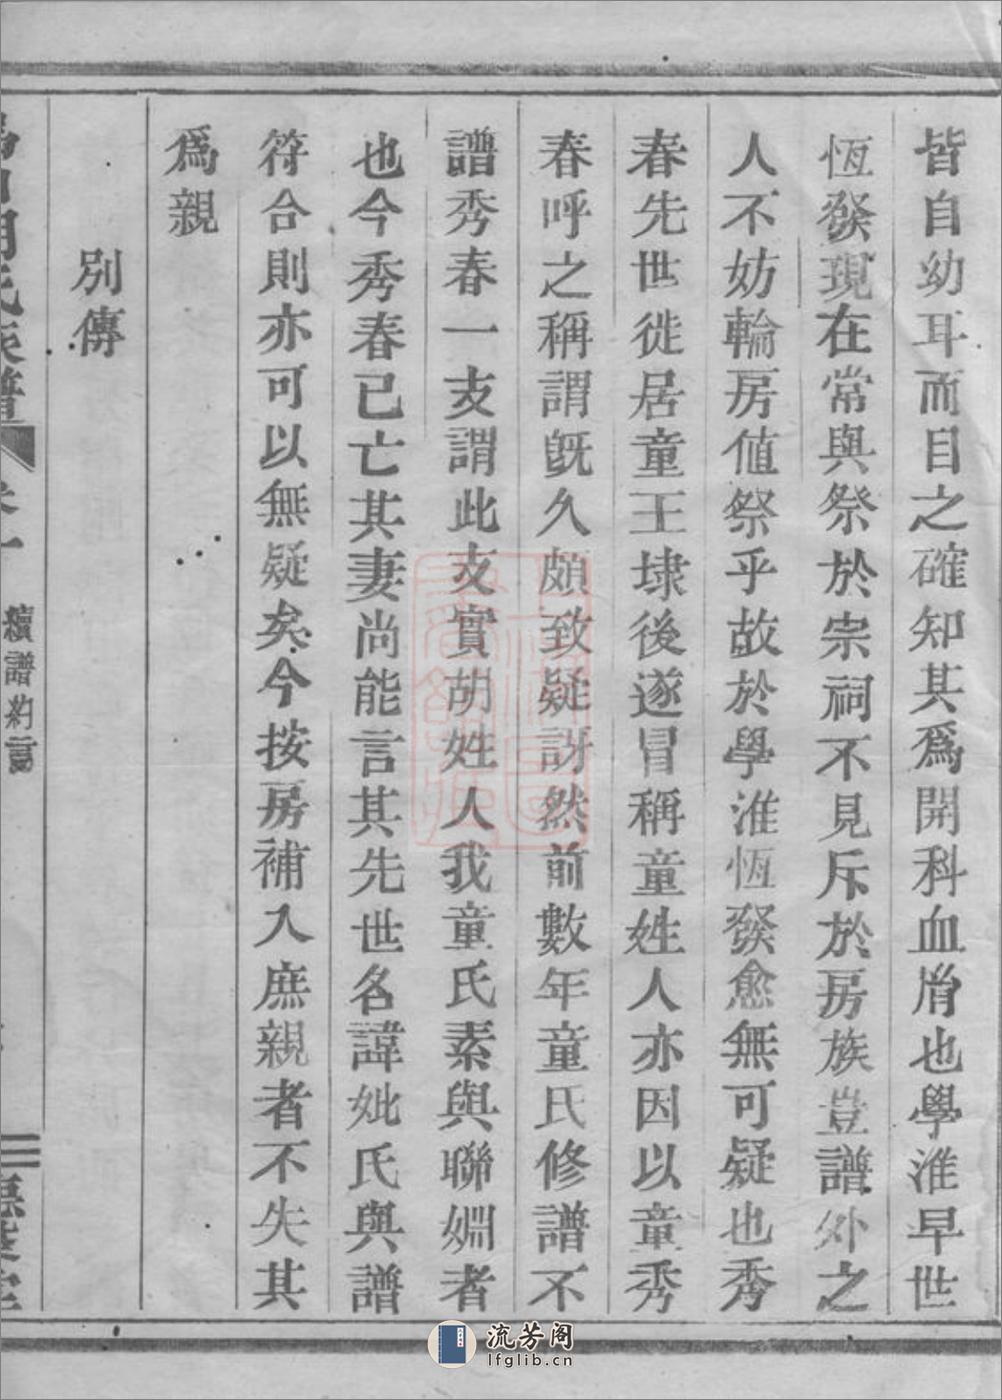 皆自幼耳而目之確知其爲開科血胤也學淮早世
恆發現在常與祭於宗祠不見斥於房族豈譜外之
人不妨輪房值祭乎故於學淮恆發愈無可疑也秀
春先世徙居童王埭後遂冒稱童姓人亦因以童秀
春呼之稱謂旣久頗致疑訝然前數年童氏修譜不
譜秀春一支謂此支實胡姓人我童氏素與聯姻者
也今秀春已亡其妻尚能言其先世名諱妣氏與譜
符合則亦可以無疑矣今按房補入庶親者不失其
爲親
別傳
胡氏族譜
卷一
續譜約言
二
流芳阁
lfglib.cn